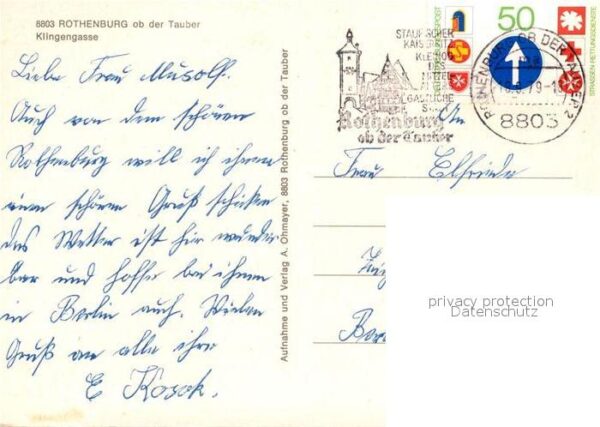 8803 ROTHENBURG ob der Tauber
Klingengasse
Liebe Frau Musolf.
Auch von dem schönen
Rothenburg will ich ihnen
einen schönen Gruß schicken
das Wetter ist hier wunder
bar und hoffe bei ihnen
in Berlin auch. Vielen
Gruß an alle ihre
E Kosok.
Aufnahme und Verlag A. Ohmayer, 8803 Rothenburg ob der Tauber
STAUFISCHER
KAISER
KLEINOD
DES
Rothenburg
ob der Tauber
ROTHENBURG OB DER TAUBER 2
79-1
8803
50
STRASSEN-RETTUNGSDIENSTE
An
Frau Elfriede
privacy protection
Datenschutz